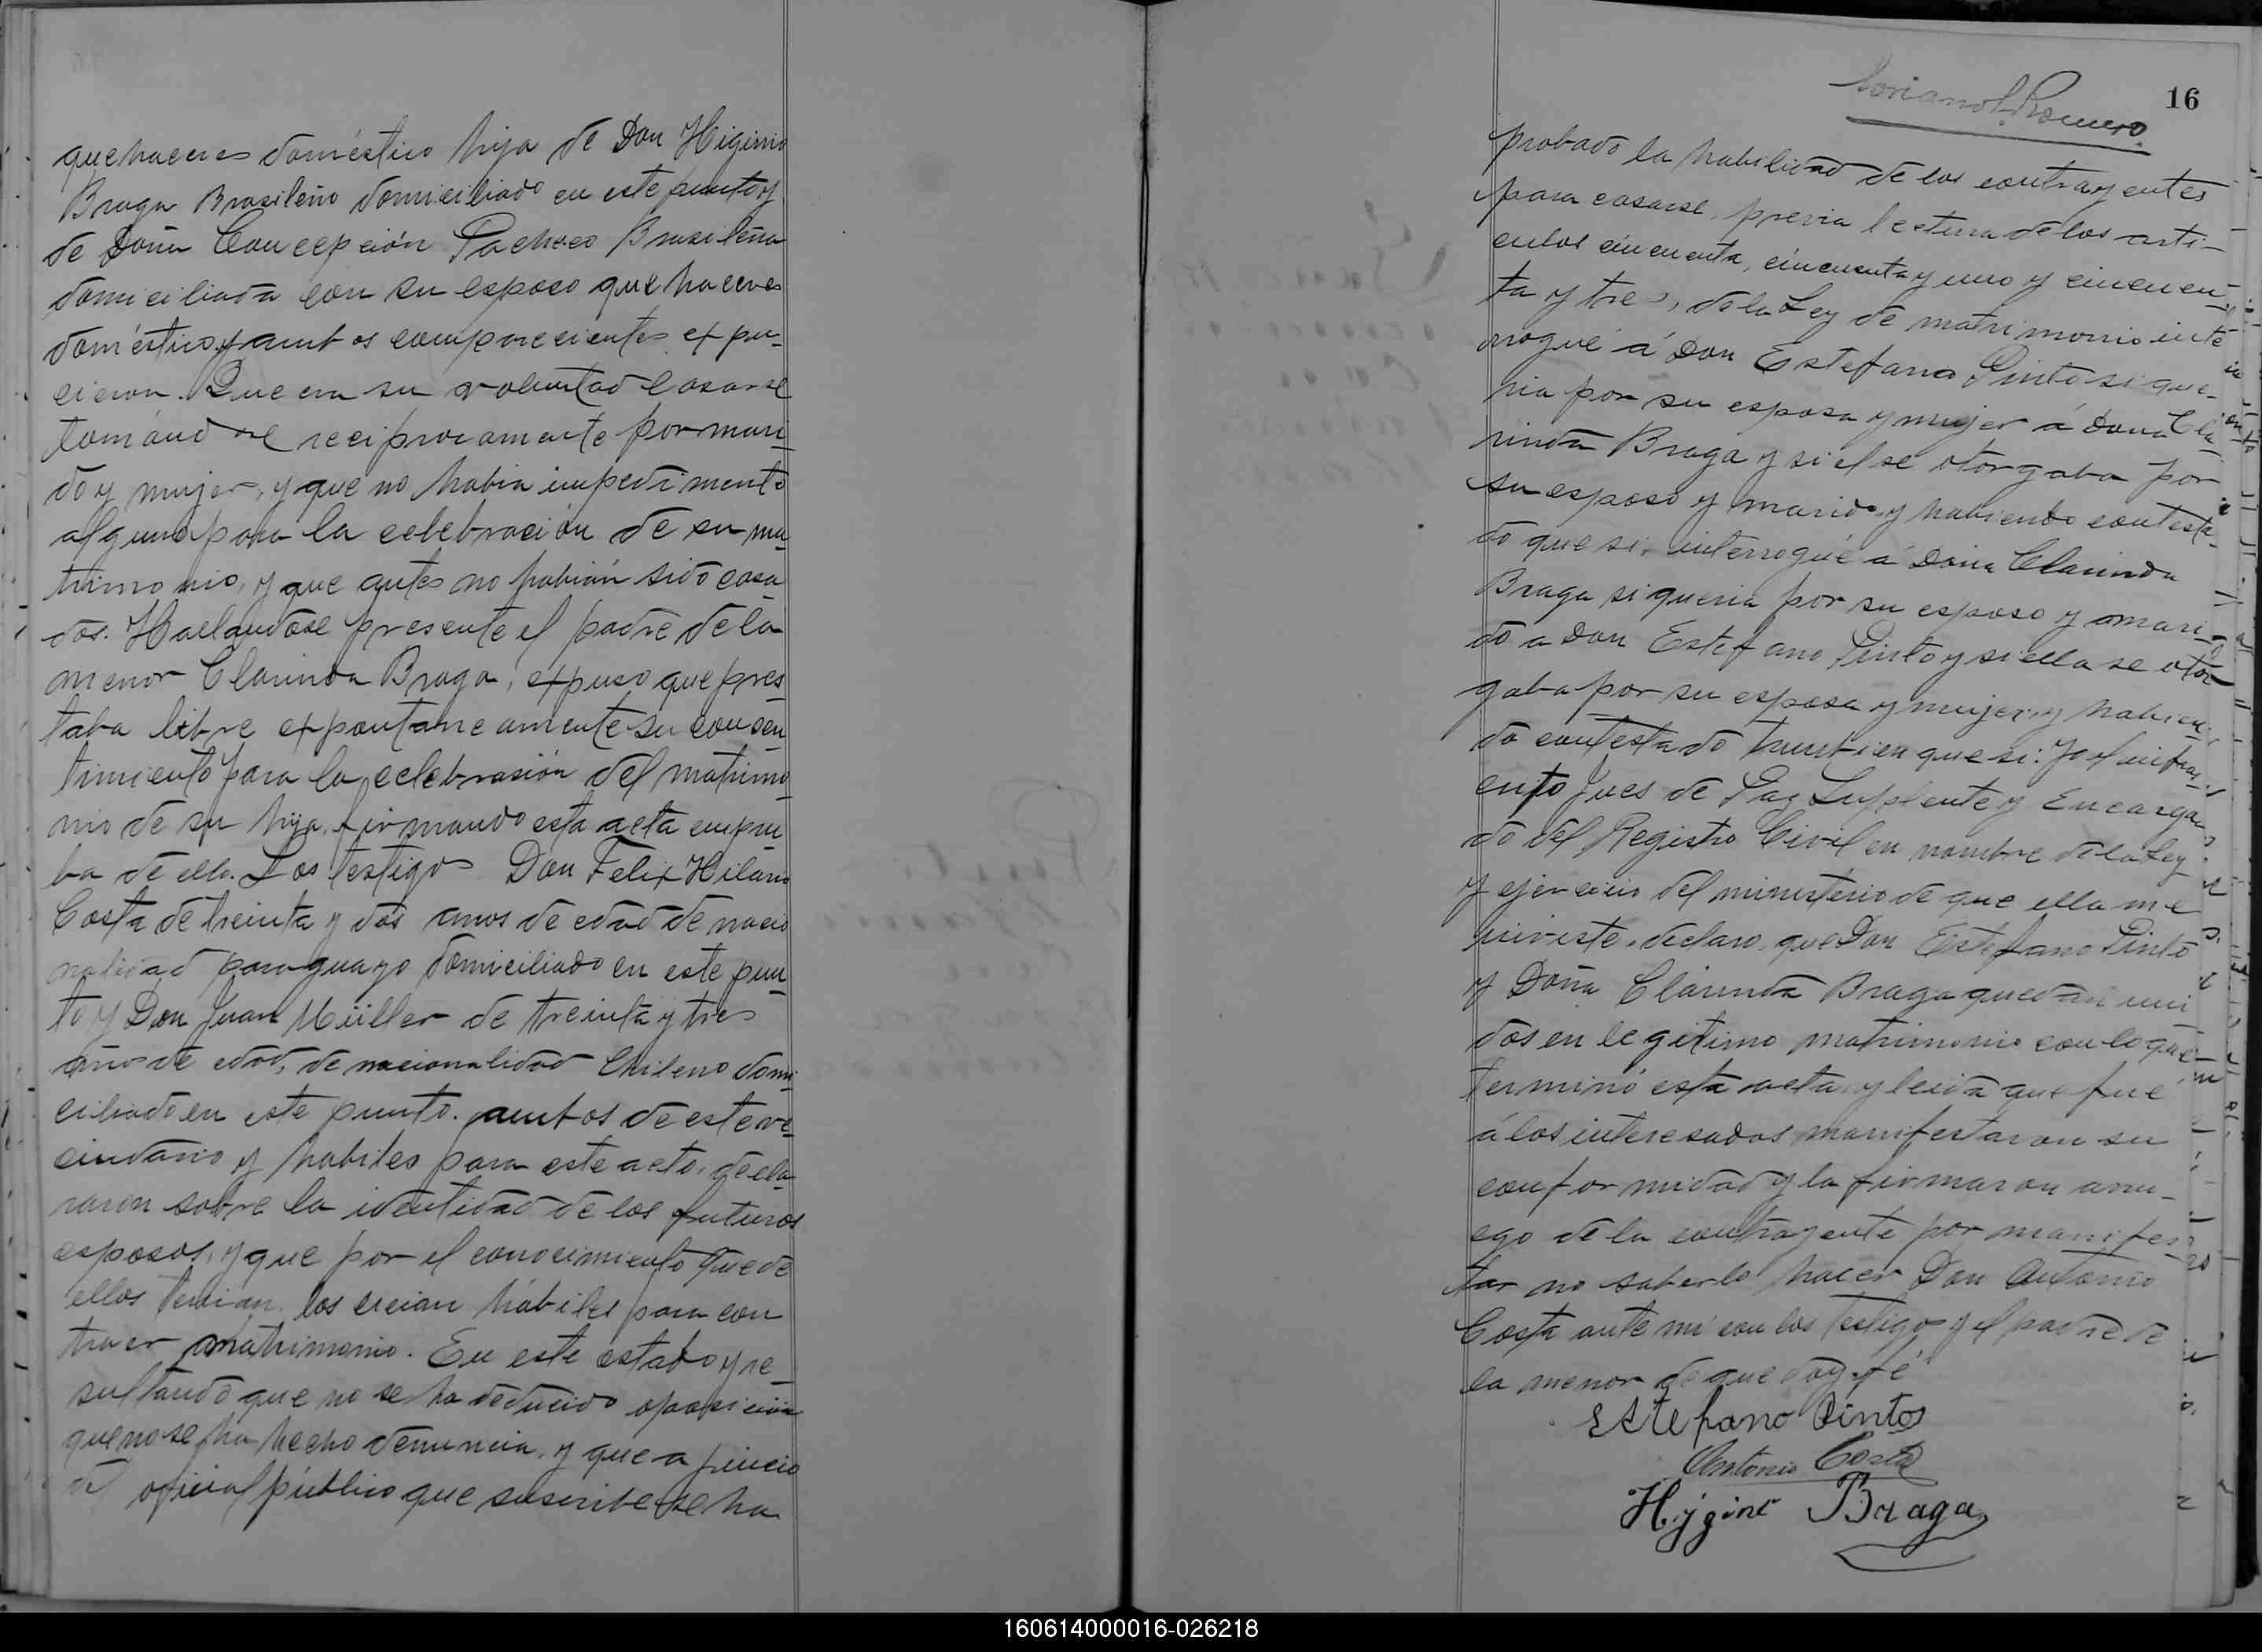 quehaceres doméstico hija de Don Higinio
Braga Brasileño domiciliado en este punto y
de Doña Concepción Pacheco Brasileña
domiciliada con su esposo quehaceres
doméstico, y ambos comparecientes expu-
cieron. Que era su voluntad casarse
tomándose reciprocamente por mari-
do y mujer, y que no habia impedimento
alguno para la celebración de su ma-
trimonio, y que antes no habián sido casa-
dos. Hallandose presente el padre de la
menor Clarinda Braga, expuso que pres-
taba libre expontaneamente su consen-
timiento para la celebrasión del matrimo-
nio de su hija, firmando esta acta en prue-
ba de ello. Los testigos Don Felix Hilario
Costa de treinta y dos anos de edad de nacio
nalidad paraguayo domiciliado en este pun-
to y Don Juan Müller de treinta y tres
años de edad, de nacionalidad Chileno domi-
ciliado en este punto. ambos de este ve-
cindario y habiles para este acto, decla-
raron sobre la identidad de los futuros
esposos, y que por el conocimiento que de
ellos tenian, los creian hábiles para con
traer matrimonio. En este estado y re-
sultando que no se ha deducido oposicion
que no se ha hecho denuncia, y que a juicio
del oficial público que suscribe se ha
16
Romero
probado la habilidad de los contrayentes
para casarse, previa lectura de los arti-
culos cincuenta, cincuenta y uno y cincuen-
ta y tres, de la Ley de matrimonio inte-
rrogué á Don Estefano Pinto si que-
ria por su esposa y mujer á Doña Cla-
rinda Braga y si el se otorgaba por
su esposo y marido y habiendo contesta-
do que si, interrogué á Doña Clarinda
Braga si queria por su esposo y mari-
do a Don Estefano Pinto y si ella se otor-
gaba por su esposa y mujer, y habien-
do contestado tambien que si: Yo el infras-
cripto Jues de Paz Suplente y Encarga-
do del Registro Civil en nombre de la Ley
y ejercicio del ministerio de que ella me
inviste, declaro, que Don Estefano Pinto
y Doña Clarinda Braga quedan uni
dos en legitimo matrimonio con lo que
terminó esta acta, y leida que fue
á los interesados manifestaron su
conformidad y la firmaron a ru-
ego de la contrayente por manifes-
tar no saberlo hacer Don Antonio
Costa ante mi con los testigos y el padre de
la menor de que doy fé
Estefano Pintos
Antonio Costa
Hyginο Braga
160614000016-026218